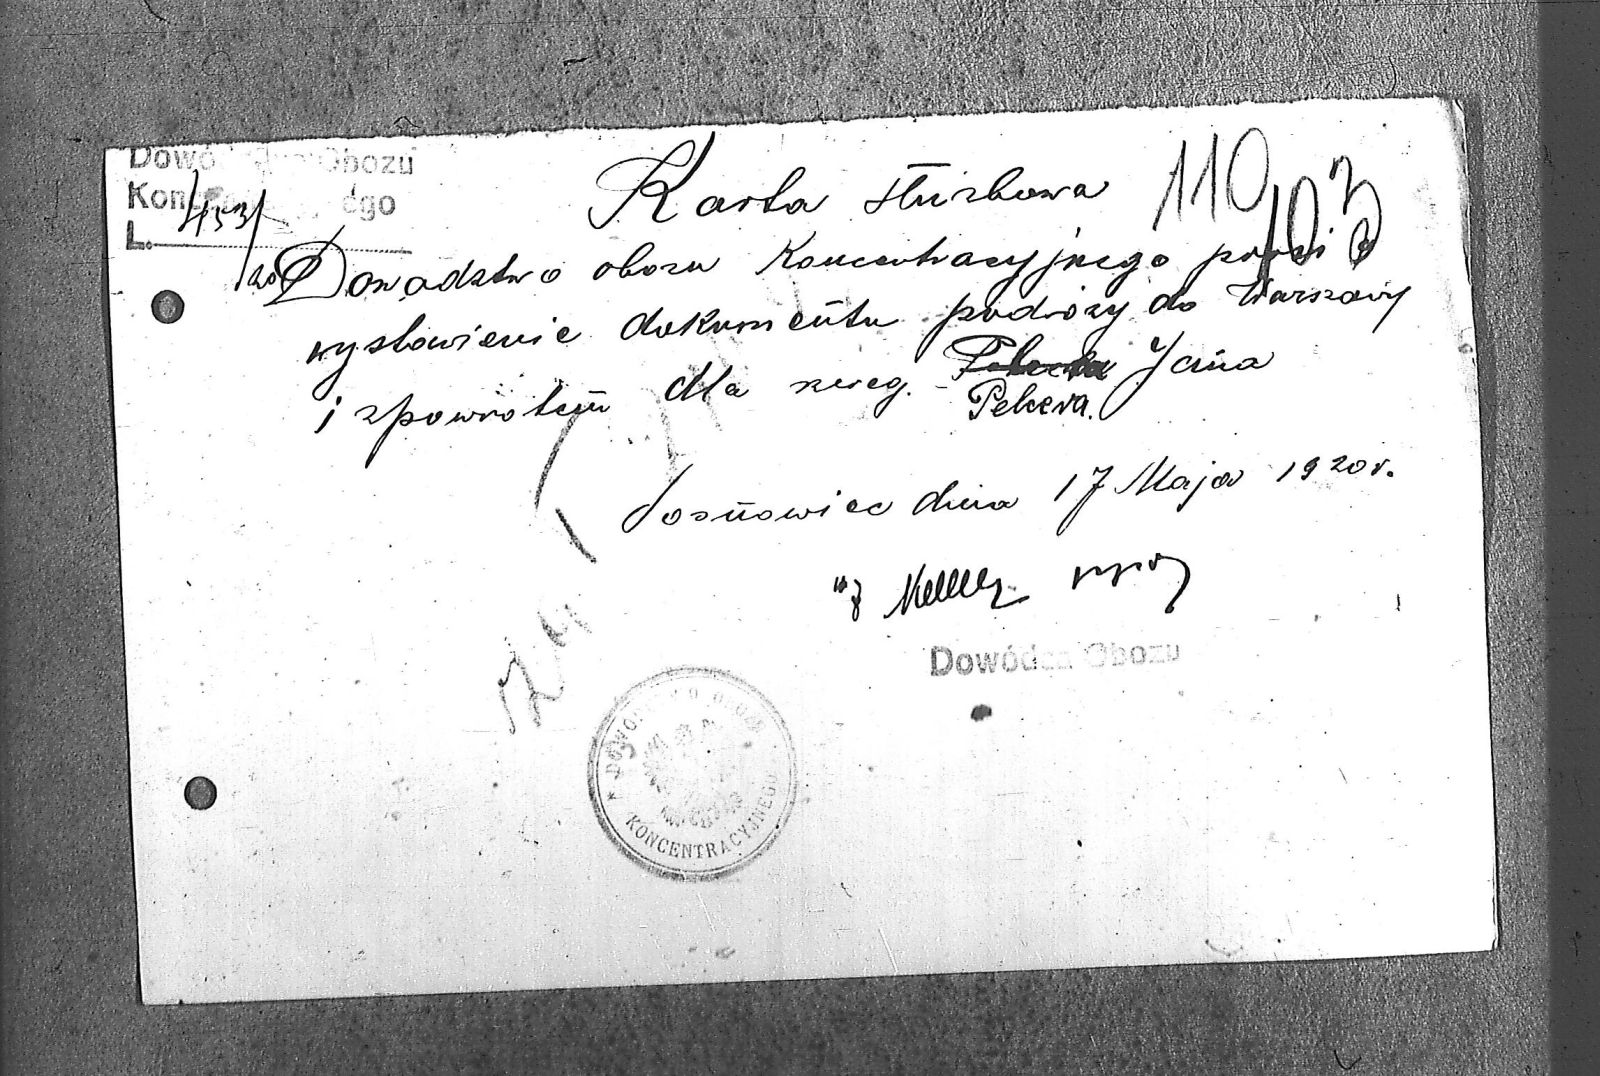 Dowó Obozu
Kon ego
L. 453/20
Karta służbowa
110
103
Dowództwo obozu Koncentracyjnego prosi o
wystawienie dokumentu podróży do Warszawy
i zpowrotem dla szereg. Jana
Pekera.
Sosnowiec dnia 17 Maja 1920 r.
Dowódca Obozu
DOWO O OBOZU
KONCENTRACYJNEGO